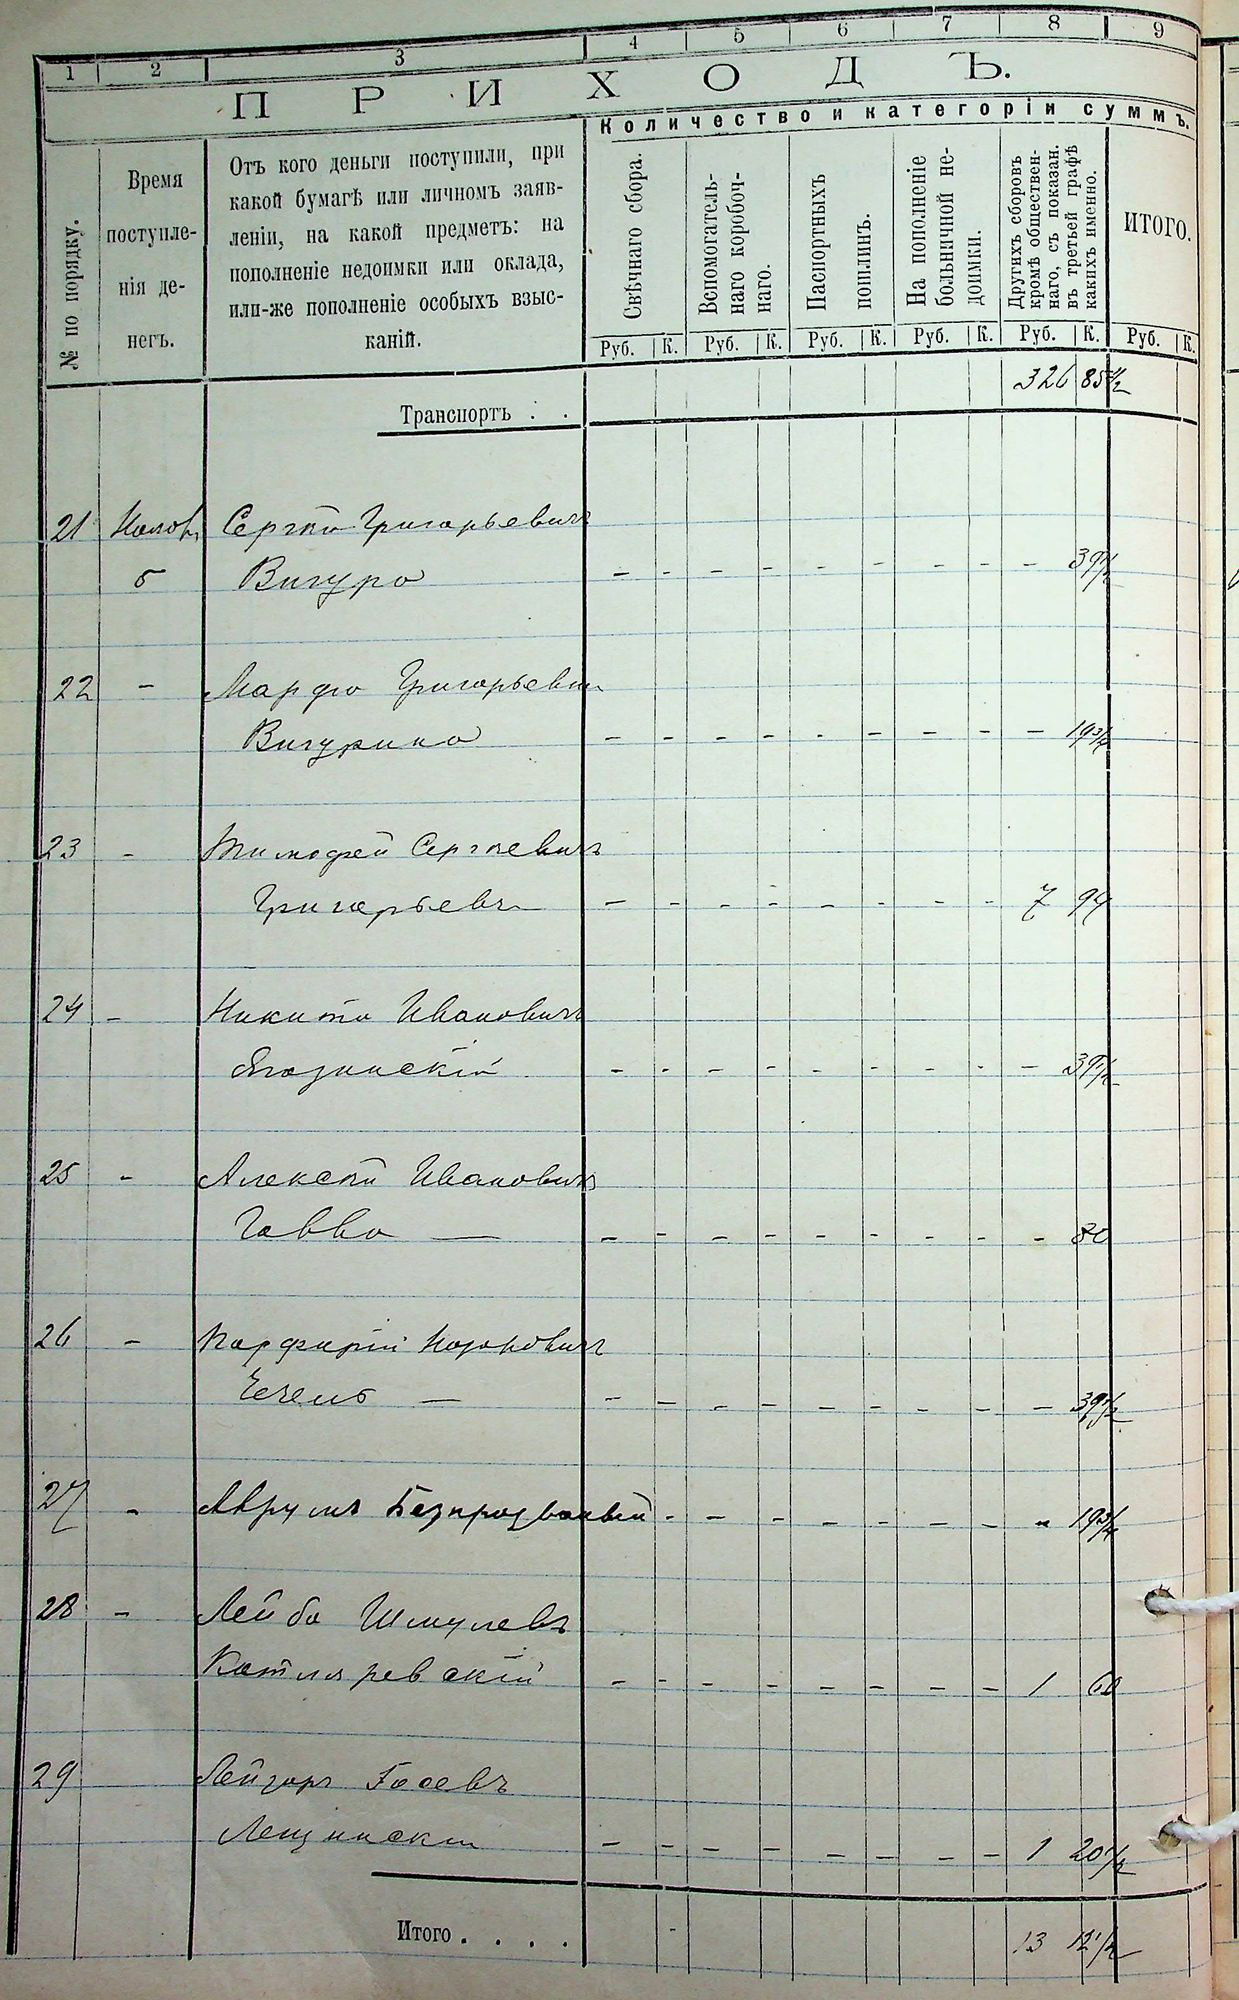 1 2 3 4 5 6 7 8 9
ПРИХОДЪ.
Количество и категоріи суммъ.
№ по порядку.
Время
поступле-
нія де-
негъ.
Отъ кого деньги поступили, при
какой бумагѣ или личномъ заяв-
леніи, на какой предметъ: на
пополненіе недоимки или оклада,
или-же пополненіе особыхъ взыс-
каній.
Свѣчнаго сбора.
Вспомогатель-
наго коробоч-
наго.
Паспортныхъ
пошлинъ.
На пополненіе
больничной не-
доимки.
Другихъ сборовъ
кромѣ обществен-
наго, съ показан.
въ третьей графѣ
какихъ именно.
ИТОГО.
Руб. К. Руб. К. Руб. К. Руб. К. Руб. К. Руб. К.
Транспортъ . . 326 85 1/2
21 Сергѣй Григорьевичъ
Вигура - - - - - - - - - 39 1/2
22 - Марфа Григорьевна
Вигурина - - - - - - - - - 19 3/4
23 - Тимофей Сергѣевичъ
Григорьевъ - - - - - - - - 7 94
24 - Никита Ивановичъ
- - - - - - - - - 39 1/2
25 - Алексѣй Ивановичъ
Савва — - - - - - - - - - 80
26 - Порфирій
Чечель — - - - - - - - - - 39 1/2
27 - Аврумъ Безпрозванный - - - - - - - - 19 3/4
28 - Лейба Шмулевъ
Котляревскій - - - - - - - - 1 60
29 Лейзоръ
Лещинскій - - - - - - - - 1 20 1/2
Итого . . . . - 13 12 1/2